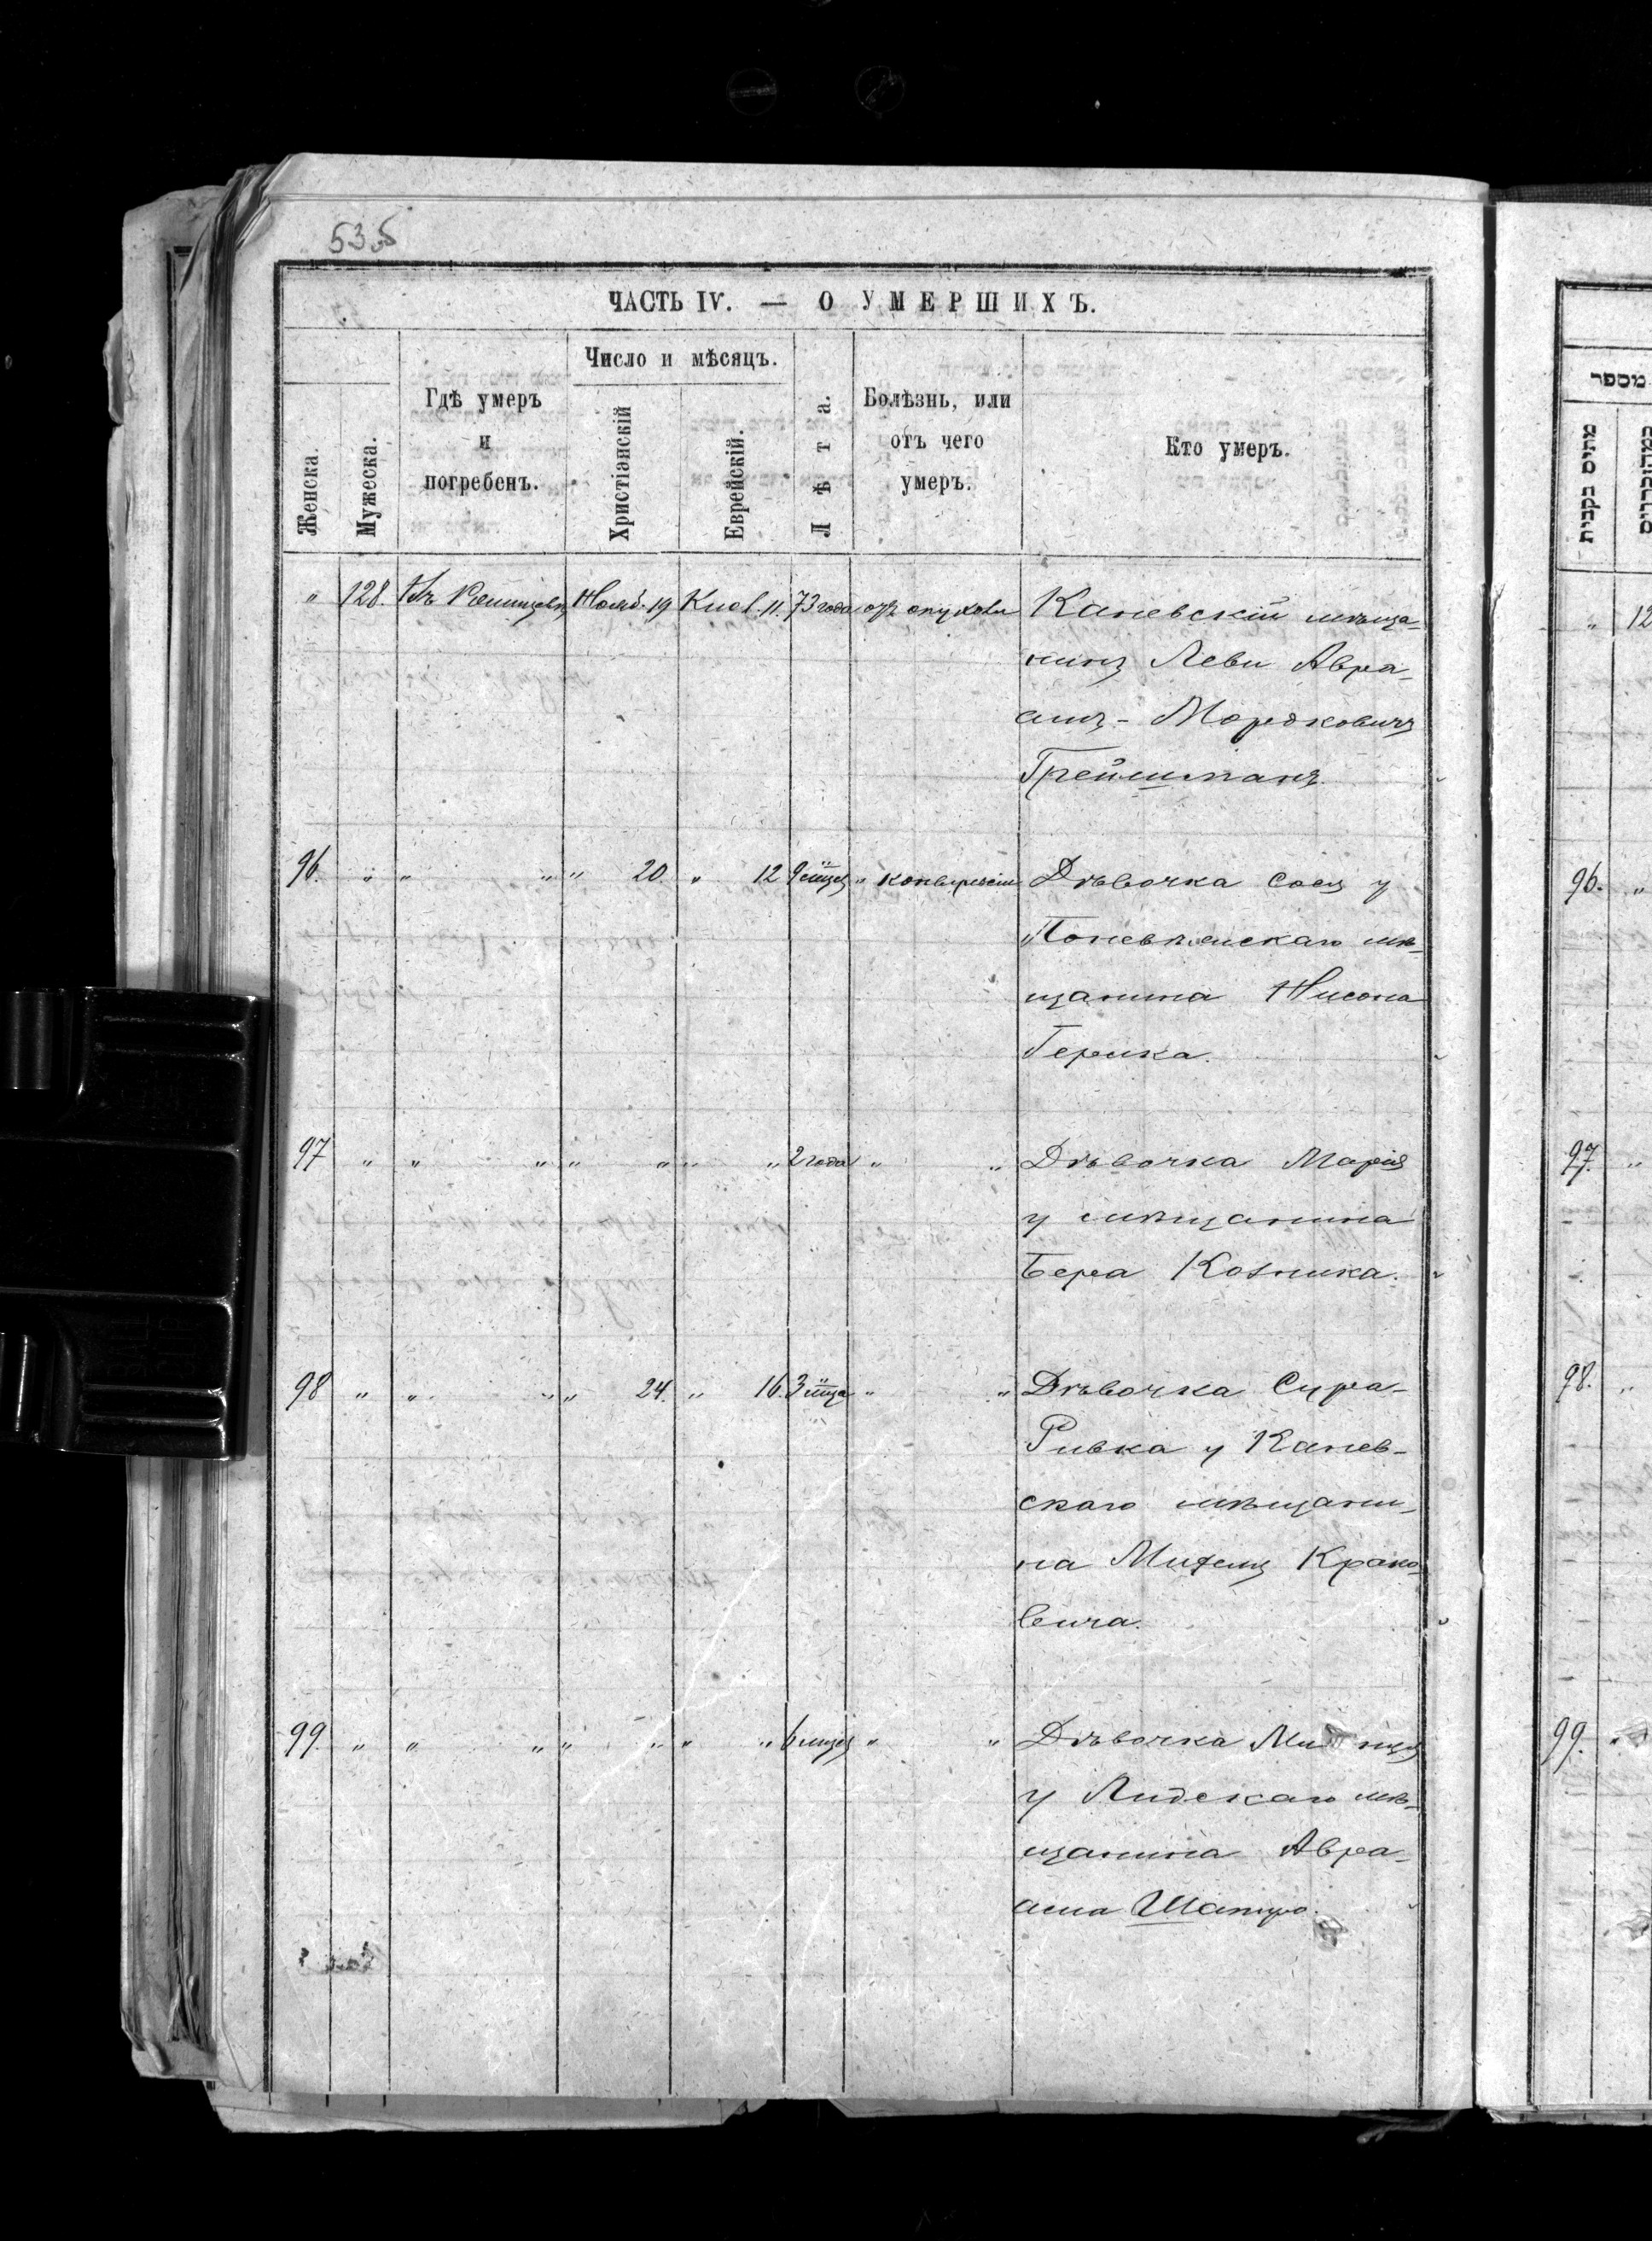 535
ЧАСТЬ IV. — О УМЕРШИХЪ.
Женска.
Мужеска.
Гдѣ умеръ
и
погребенъ.
Число и мѣсяцъ.
Христіанскій
Еврейскій.
Лѣта.
Болѣзнь, или
отъ чего
умеръ.
Кто умеръ.
„ 128. Въ Нояб. 19 Кисл. 11. 73 года отъ опухоли Каневскій мѣща-
нинъ Леви Авра-
амъ-Мордковичъ
Грейшманъ.
96. „ „ „ „ 20. „ 12 9 мцевъ „ конвульсіи Дѣвочка Сося у
Поневѣжскаго мѣ-
щанина Нисона
Герика.
97 „ „ „ „ „ „ „ 2 года „ „ Дѣвочка Марія
у мѣщанина
Бера Козника.
98 „ „ „ „ 24. „ 16. 3 мца „ „ Дѣвочка Сура-
Ривка у Канев-
скаго мѣщани-
на Крако-
вича.
99. „ „ „ „ „ „ „ 6 мцевъ „ „ Дѣвочка
у Лидскаго мѣ-
щанина Авра-
ама Шапиро.
מספר
מתים נקבות
„ 12
96. „
97. „
98. „
99. „